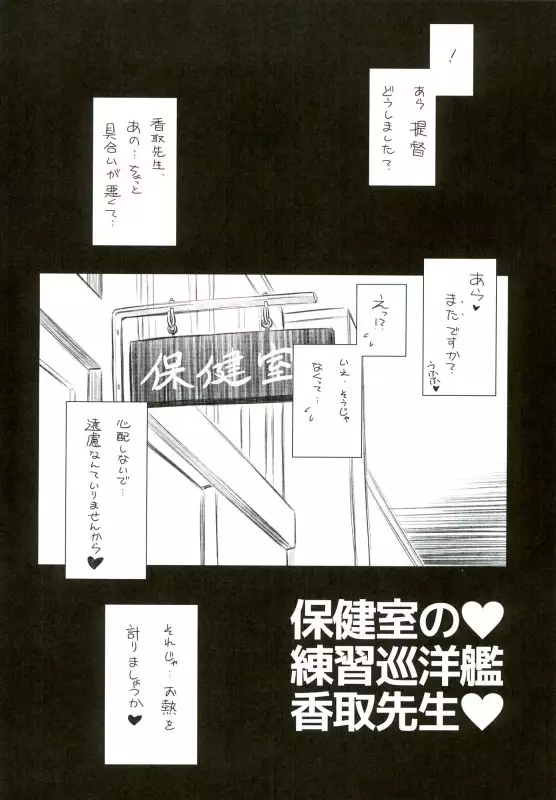 ！
あら 提督
どうしました？
香取先生、
あの…ちょっと
具合いが悪くて…
あら♥
またですか？
うふふ♥
えっ!?
いえ、そうじゃ
なくって…
保健室
心配しないで…
遠慮なんていりませんから
♥
それじゃ…お熱を
計りましょうか
♥
保健室の♥
練習巡洋艦
香取先生♥